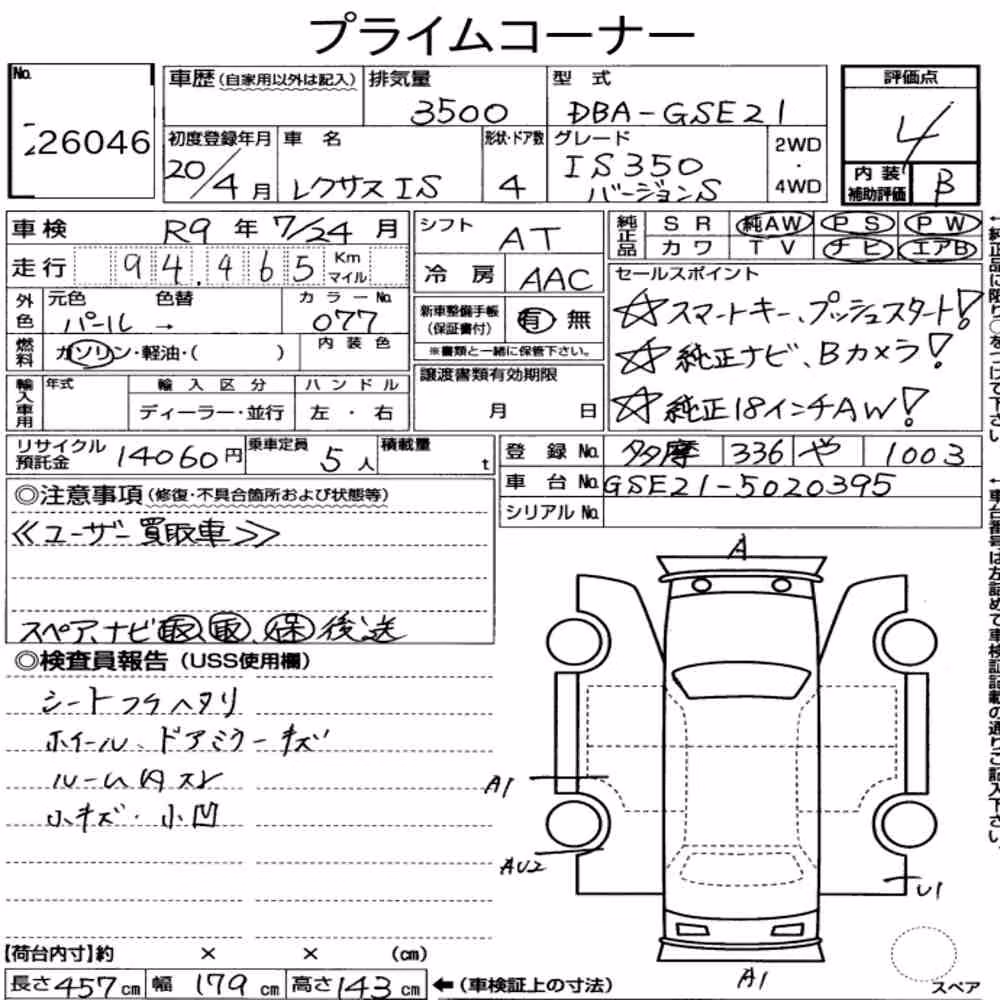 プライムコーナー
No.
26046
車歴 (自家用以外は記入)
排気量
3500
型 式
DBA-GSE21
評価点
4
内装補助評価
B
初度登録年月
20/4月
車 名
レクサス IS
形状・ドア数
4
グレード
IS350
バージョンS
2WD
・
4WD
車検
R9 年 7/24 月
走行
94,465 Km マイル
シフト
AT
冷 房
AAC
純正品
SR 純AW PS PW
カワ TV ナビ エアB
外色
元色 色替
パール →
カラーNo.
077
燃料
ガソリン・軽油・( )
内 装 色
新車整備手帳
(保証書付)
有 無
※書類と一緒に保管下さい。
セールスポイント
☆スマートキー、プッシュスタート!
☆純正ナビ、Bカメラ!
☆純正18インチAW!
輸入車用
年式
輸 入 区 分
ディーラー・並行
ハ ン ド ル
左 ・ 右
譲渡書類有効期限
月 日
リサイクル預託金
14060円
乗車定員
5人
積載量
t
登 録 No.
多摩 336 や 1003
車 台 No.
GSE21-5020395
シリアル No.
◎注意事項 (修復・不具合箇所および状態等)
≪ユーザー買取車≫
スペア、ナビ 取、取、保 後送
◎検査員報告 (USS使用欄)
シートフケヘタリ
ホイール、ドアミラーキズ
ルーム内スレ
小キズ・小凹
A
A1
AU2
U1
A1
スペア
【荷台内寸】約 × × (cm)
長さ 457 cm 幅 179 cm 高さ 143 cm ←(車検証上の寸法)
←純正品に限り○をつけて下さい。
←車台番号は左詰めで車検証記載の通りご記入下さい。